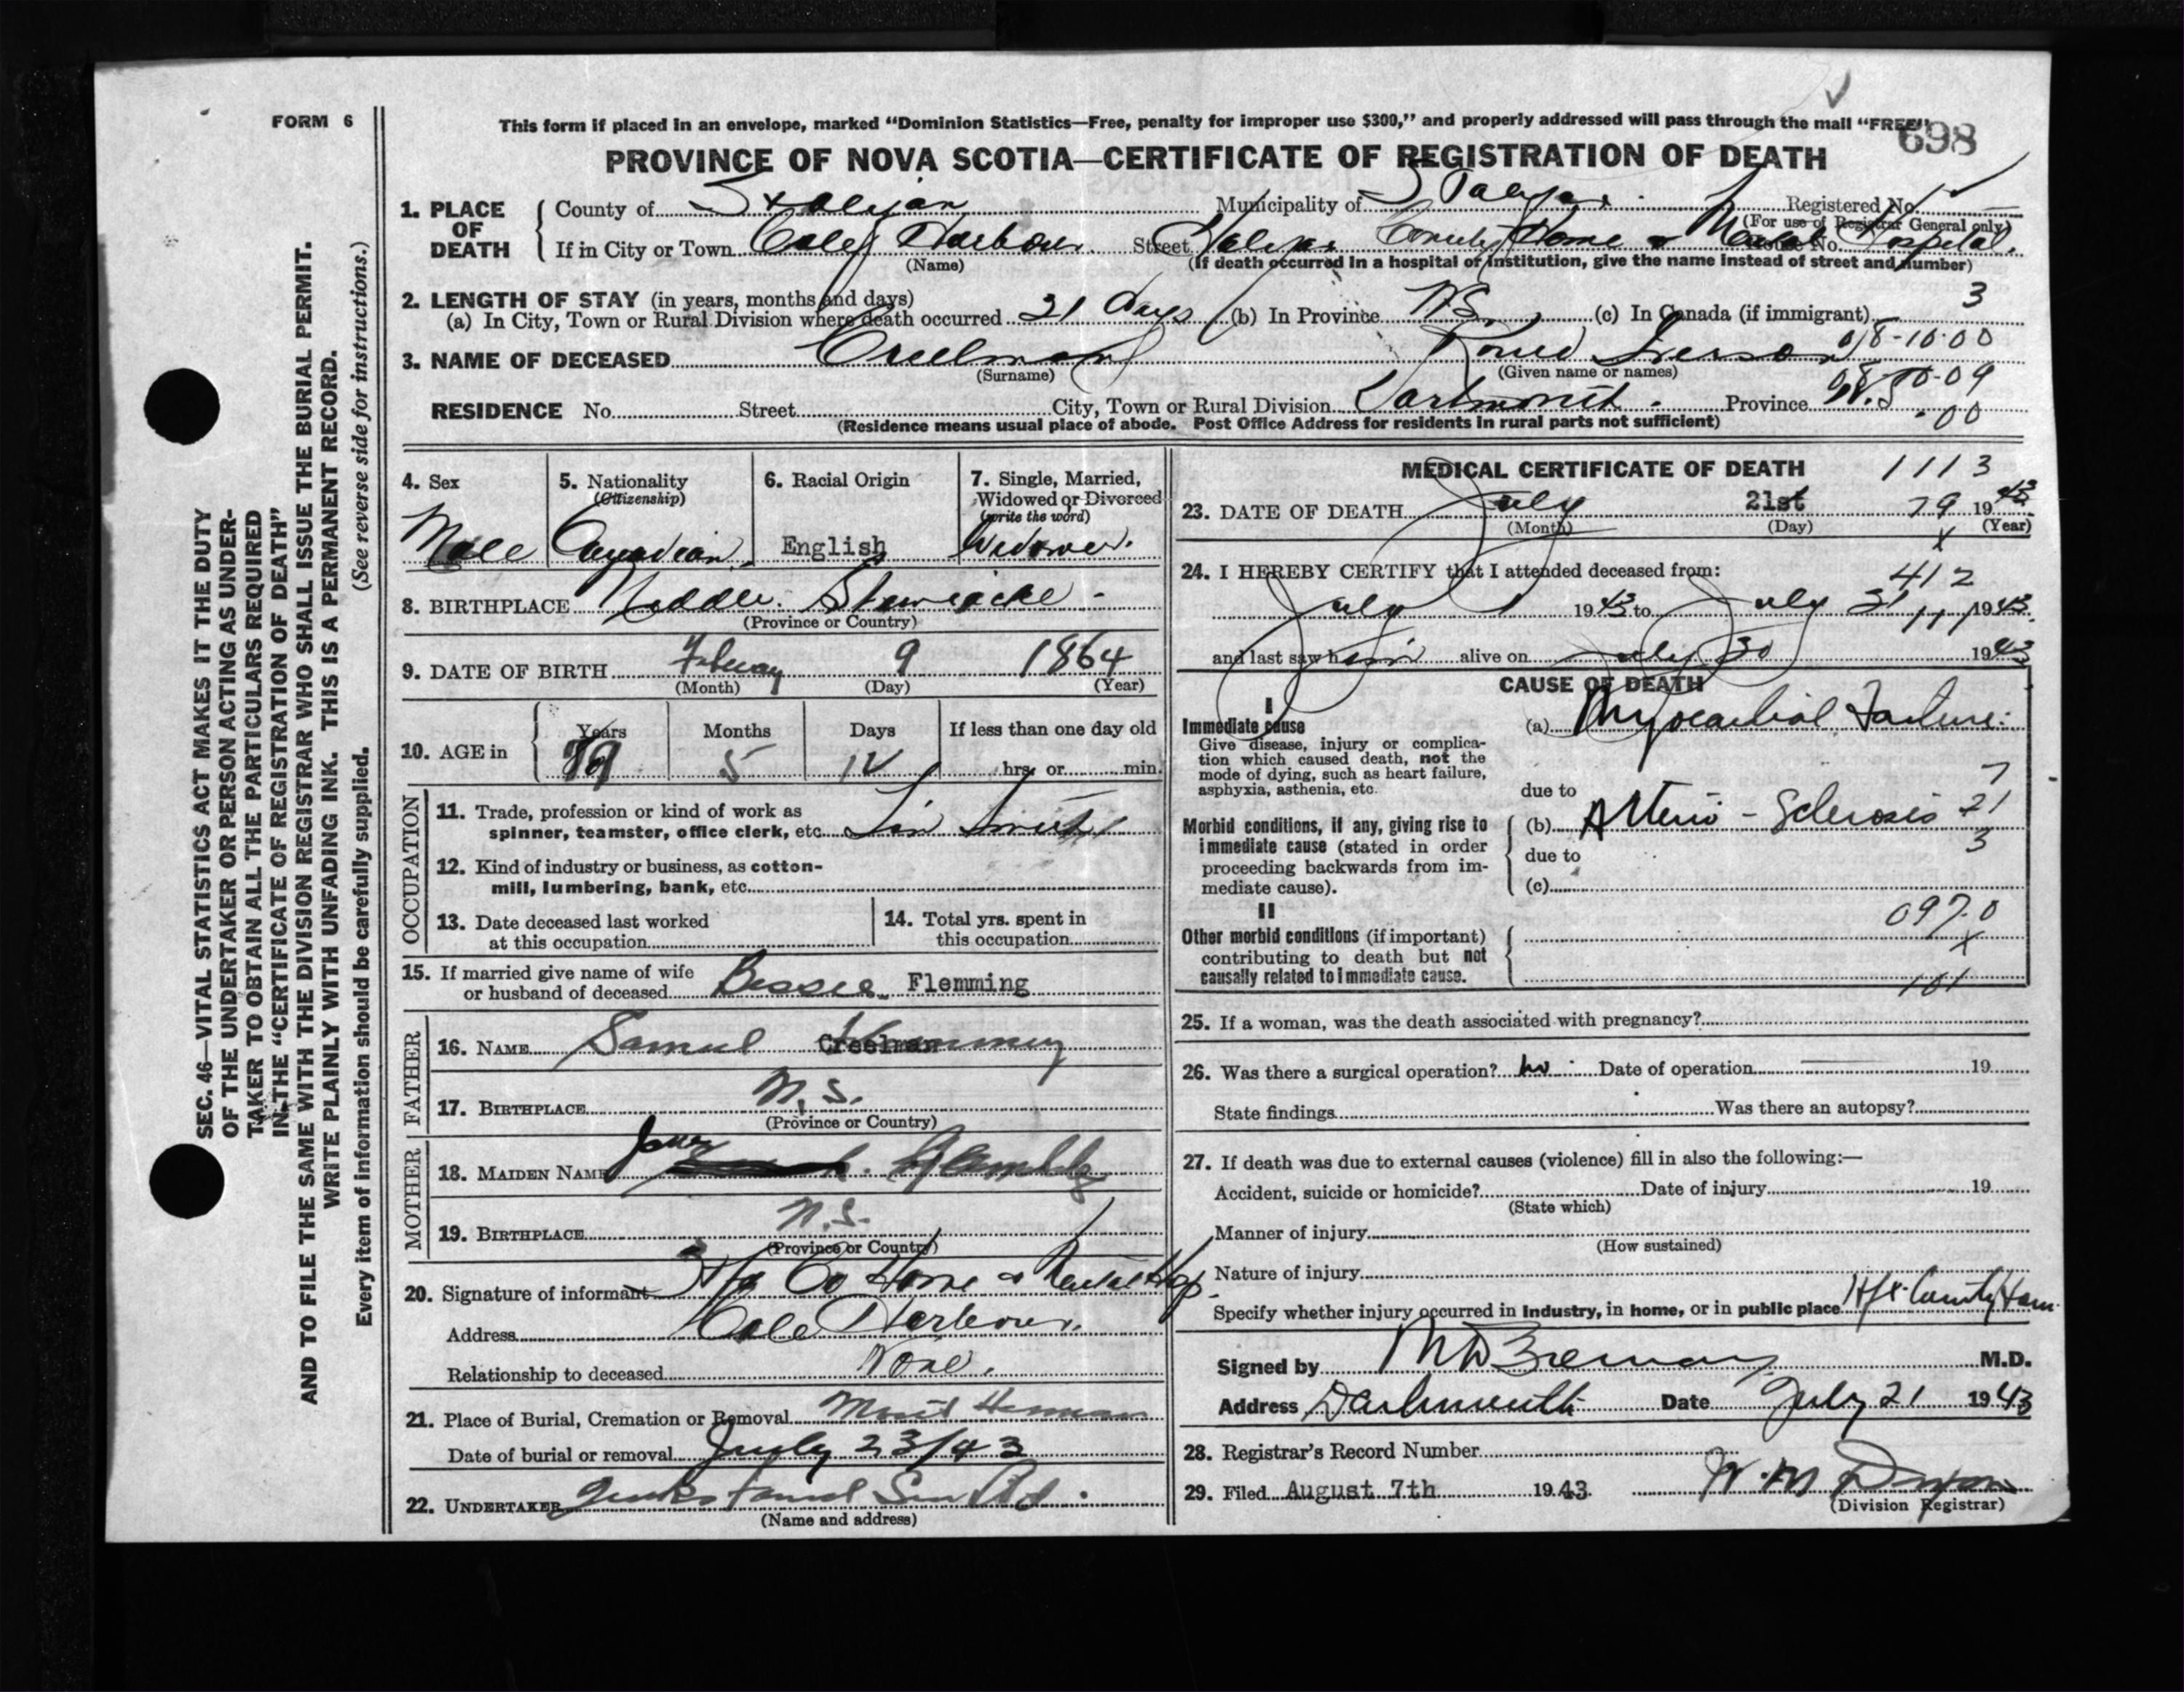 FORM 6
This form if placed in an envelope, marked "Dominion Statistics—Free, penalty for improper use $300," and properly addressed will pass through the mail "FREE"
698
PROVINCE OF NOVA SCOTIA—CERTIFICATE OF REGISTRATION OF DEATH
1. PLACE OF DEATH
County of Halifax Municipality of Halifax Registered No.
(For use of Registrar General only)
If in City or Town Cole Harbour Street Halifax County Home & Mental Hospital. House No.
(Name) (If death occurred in a hospital or institution, give the name instead of street and number)
2. LENGTH OF STAY (in years, months and days)
(a) In City, Town or Rural Division where death occurred 21 days (b) In Province N.S. (c) In Canada (if immigrant) 3
018-10-00
3. NAME OF DECEASED Creelman
(Surname) (Given name or names)
RESIDENCE No. Street City, Town or Rural Division Dartmouth. Province N.S.
-00
(Residence means usual place of abode. Post Office Address for residents in rural parts not sufficient)
4. Sex Male
5. Nationality (Citizenship) Canadian
6. Racial Origin English
7. Single, Married, Widowed or Divorced (write the word) Widower.
8. BIRTHPLACE Middle Stewiacke
(Province or Country)
9. DATE OF BIRTH February 9 1864
(Month) (Day) (Year)
10. AGE in Years 79 Months 5 Days 12 If less than one day old hrs. or min.
OCCUPATION
11. Trade, profession or kind of work as spinner, teamster, office clerk, etc. Tin Smith
12. Kind of industry or business, as cotton-mill, lumbering, bank, etc.
13. Date deceased last worked at this occupation
14. Total yrs. spent in this occupation
15. If married give name of wife or husband of deceased Bessie Flemming
FATHER
16. NAME Samuel Creelman
17. BIRTHPLACE N.S.
(Province or Country)
MOTHER
18. MAIDEN NAME
19. BIRTHPLACE N.S.
(Province or Country)
20. Signature of informant Hfx Co Home & Mental Hosp.
Address Cole Harbour.
Relationship to deceased None.
21. Place of Burial, Cremation or Removal Mount Hermon
Date of burial or removal July 23/43
22. UNDERTAKER
(Name and address)
MEDICAL CERTIFICATE OF DEATH 1113
23. DATE OF DEATH July 21st 79 1943
(Month) (Day) (Year)
X
24. I HEREBY CERTIFY that I attended deceased from:
412
July 1 1943 to July 21 1943
and last saw him alive on July 20 1943
CAUSE OF DEATH
I
Immediate cause
Give disease, injury or complication which caused death, not the mode of dying, such as heart failure, asphyxia, asthenia, etc.
(a) Myocardial Failure.
7
due to
Morbid conditions, if any, giving rise to immediate cause (stated in order proceeding backwards from immediate cause).
(b) Arterio-Sclerosis 21
3
due to
(c)
II
097.0
X
101
Other morbid conditions (if important) contributing to death but not causally related to immediate cause.
25. If a woman, was the death associated with pregnancy?
26. Was there a surgical operation? no Date of operation 19
State findings Was there an autopsy?
27. If death was due to external causes (violence) fill in also the following:—
Accident, suicide or homicide? Date of injury 19
(State which)
Manner of injury
(How sustained)
Nature of injury
Specify whether injury occurred in Industry, in home, or in public place Hfx. County Home
Signed by M.D.
Address Dartmouth Date July 21 1943
28. Registrar's Record Number
29. Filed August 7th 1943.
(Division Registrar)
SEC. 46—VITAL STATISTICS ACT MAKES IT THE DUTY
OF THE UNDERTAKER OR PERSON ACTING AS UNDER-
TAKER TO OBTAIN ALL THE PARTICULARS REQUIRED
IN THE "CERTIFICATE OF REGISTRATION OF DEATH"
AND TO FILE THE SAME WITH THE DIVISION REGISTRAR WHO SHALL ISSUE THE BURIAL PERMIT.
WRITE PLAINLY WITH UNFADING INK. THIS IS A PERMANENT RECORD.
Every item of information should be carefully supplied. (See reverse side for instructions.)